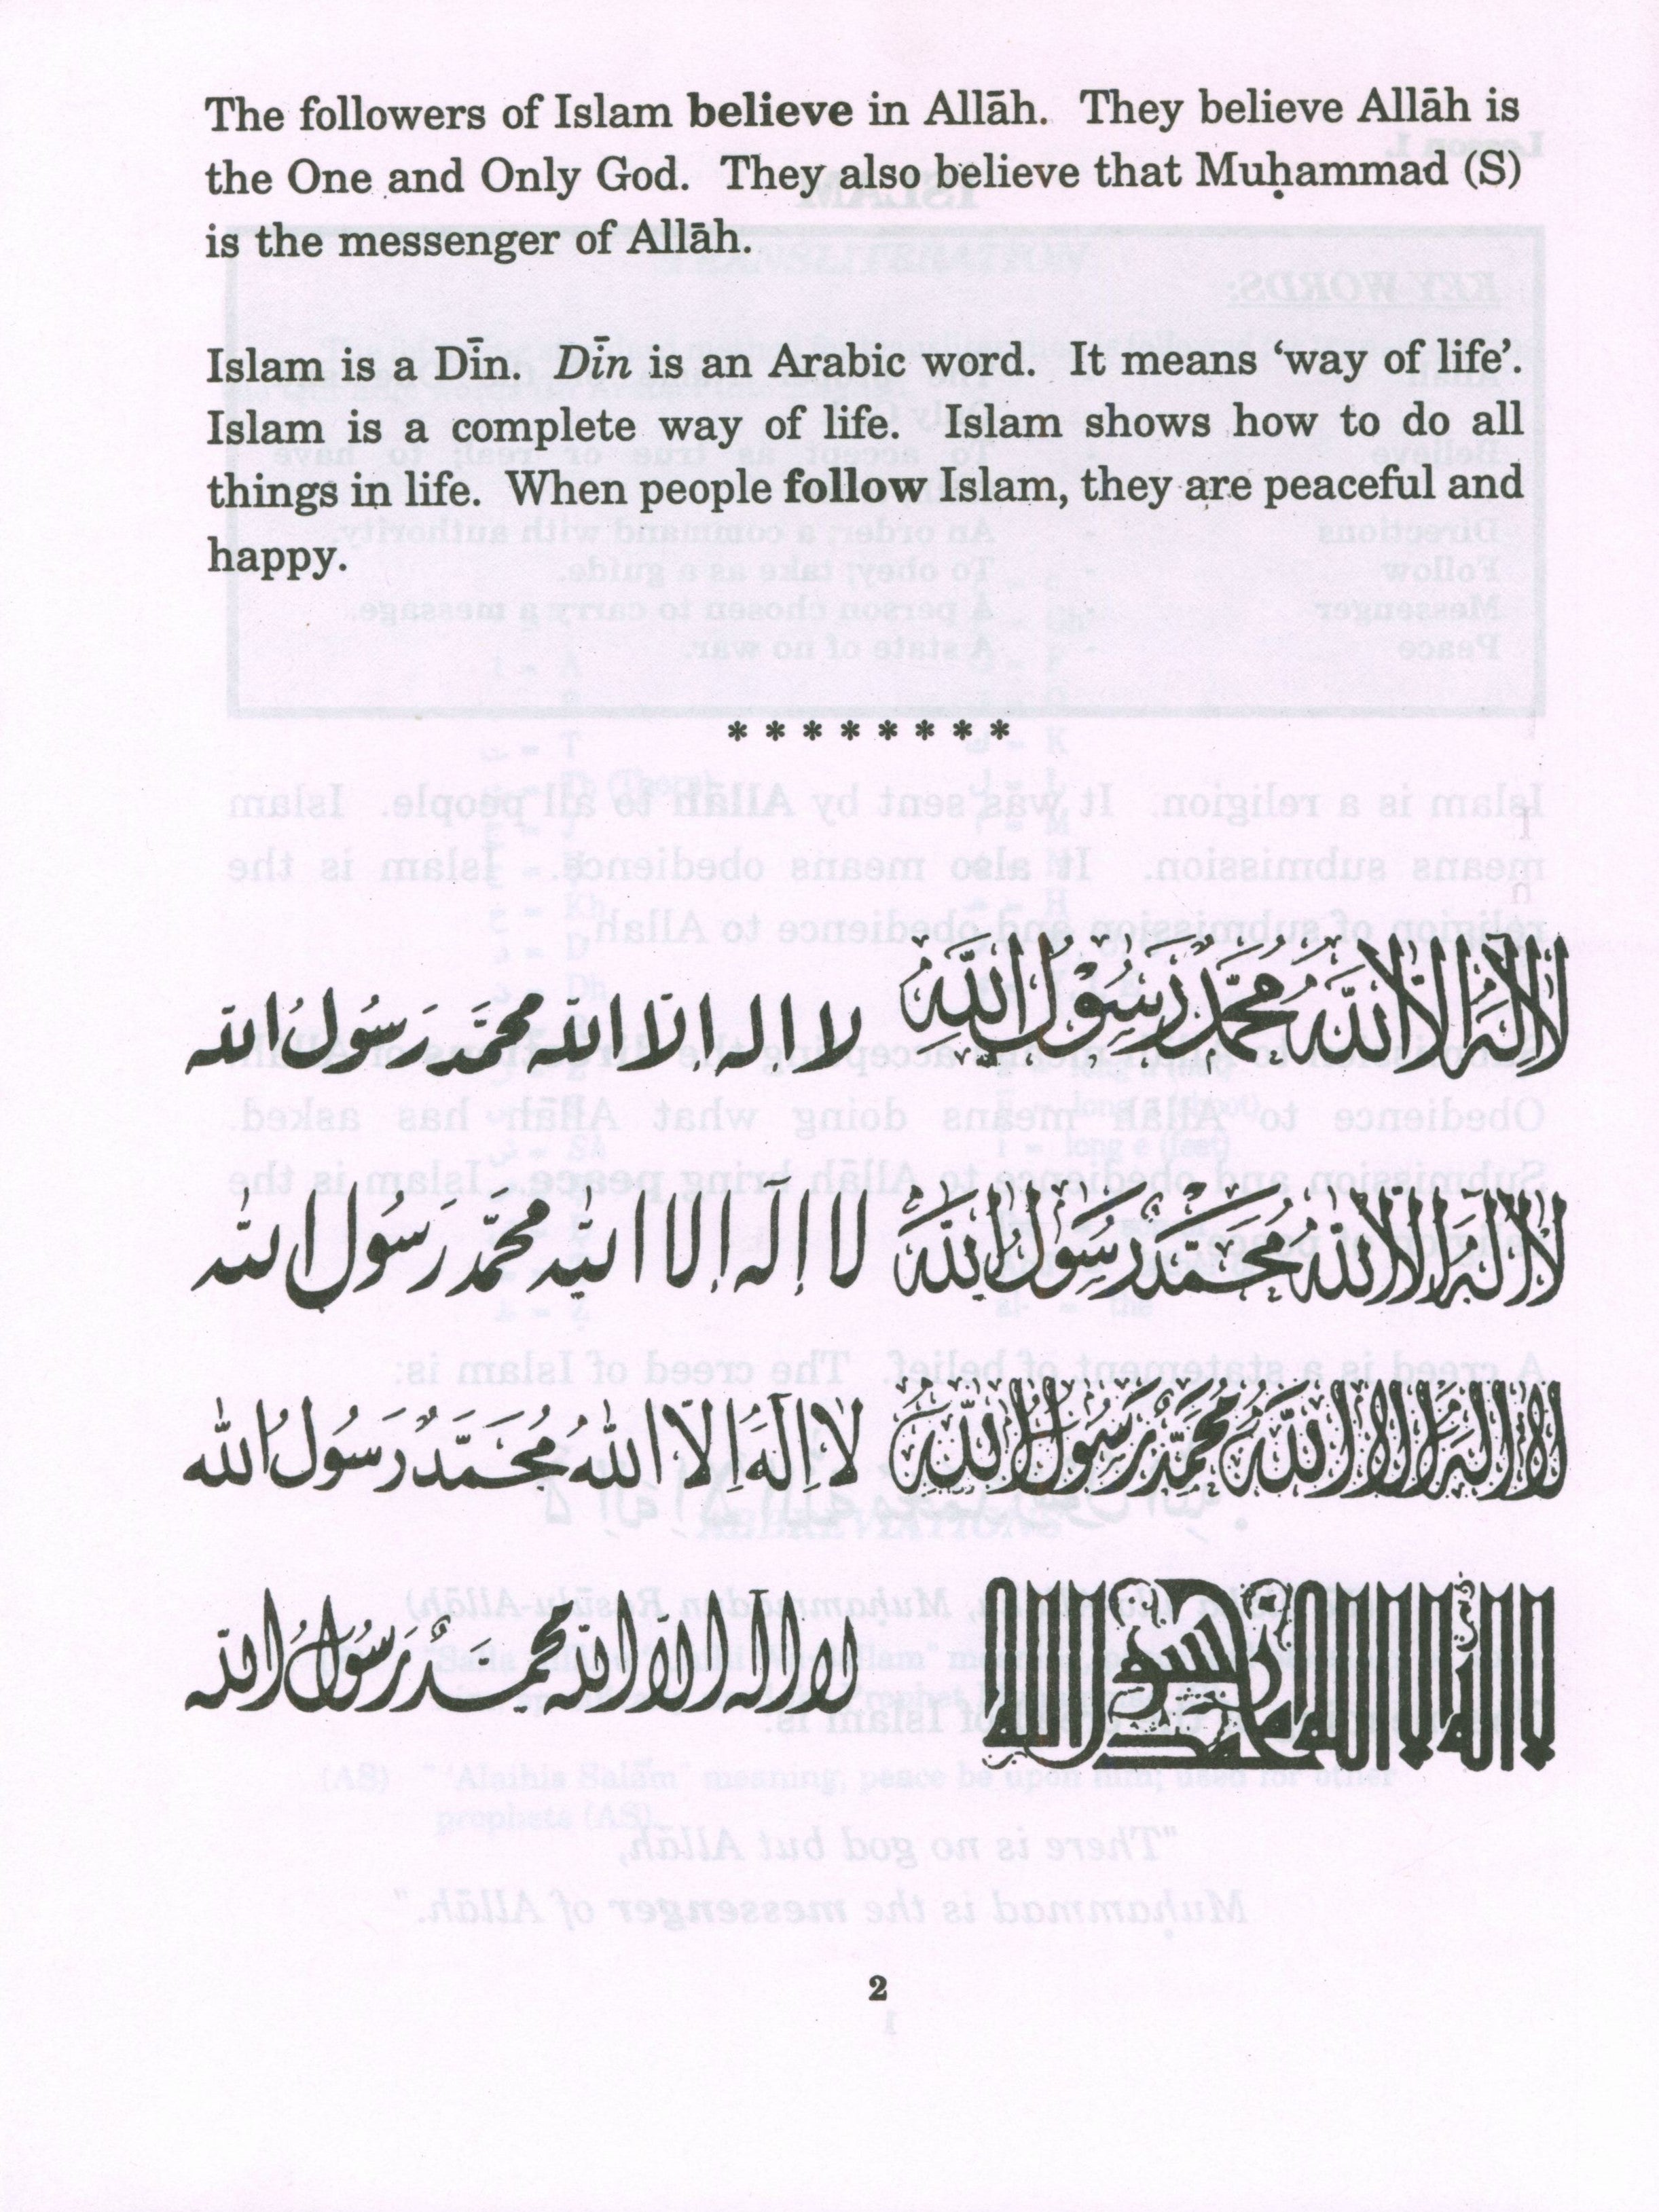 The followers of Islam believe in Allāh. They believe Allāh is
the One and Only God. They also believe that Muḥammad (S)
is the messenger of Allāh.
Islam is a Dīn. Dīn is an Arabic word. It means ‘way of life’.
Islam is a complete way of life. Islam shows how to do all
things in life. When people follow Islam, they are peaceful and
happy.
* * * * * * * *
لا اله الا الله محمد رسول الله لا اله الا الله محمد رسول الله
لا اله الا الله محمد رسول الله لا اله الا الله محمد رسول الله
لا اله الا الله محمد رسول الله لا اله الا الله محمد رسول الله
لا اله الا الله محمد رسول الله لا اله الا الله محمد رسول الله
2